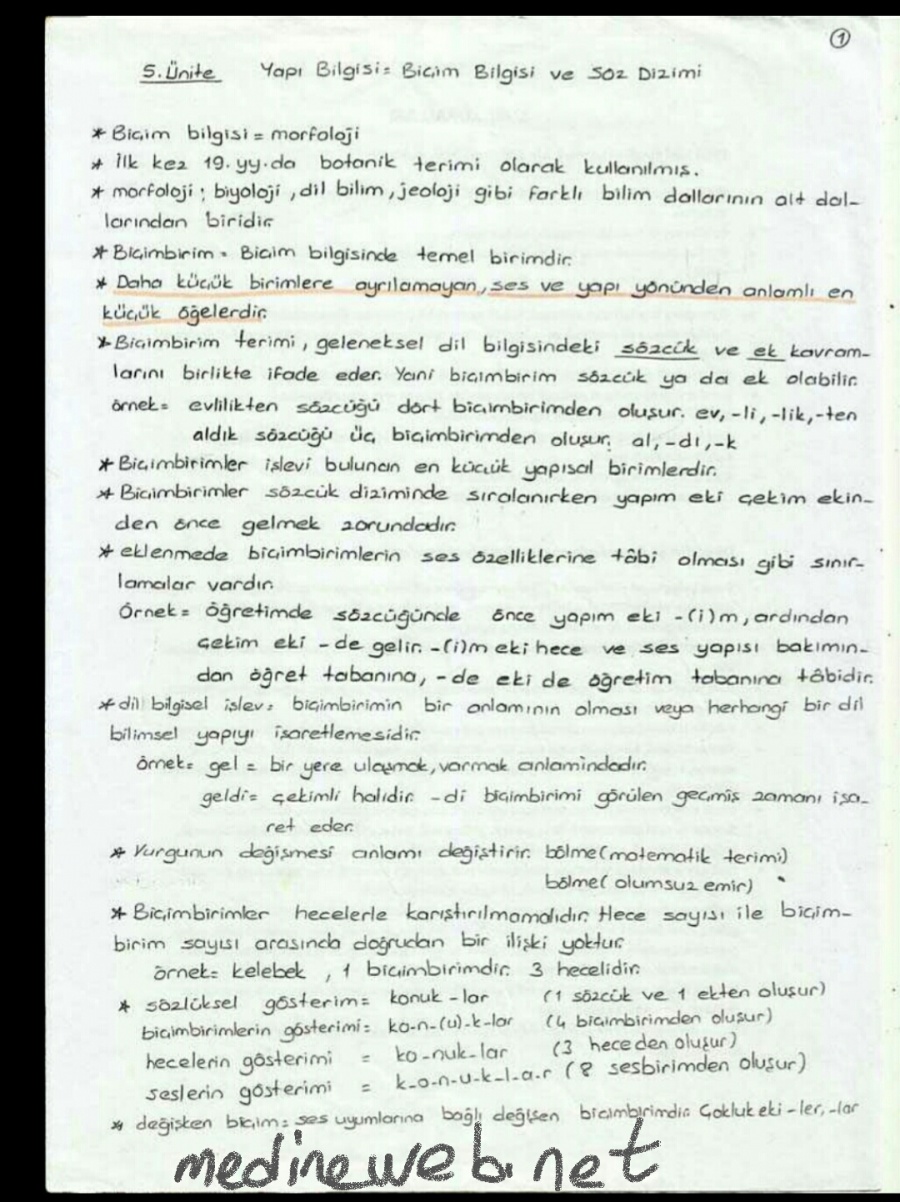 ①
5. Ünite Yapı Bilgisi= Biçim Bilgisi ve Söz Dizimi
* Biçim bilgisi = morfoloji
* İlk kez 19. yy.da botanik terimi olarak kullanılmış.
* morfoloji ; biyoloji , dil bilim , jeoloji gibi farklı bilim dallarının alt dal-
larından biridir.
* Biçimbirim = Biçim bilgisinde temel birimdir.
* Daha küçük birimlere ayrılamayan, ses ve yapı yönünden anlamlı en
küçük öğelerdir.
* Biçimbirim terimi , geleneksel dil bilgisindeki sözcük ve ek kavram-
larını birlikte ifade eder. Yani biçimbirim sözcük ya da ek olabilir.
örnek= evlilikten sözcüğü dört biçimbirimden oluşur. ev, -li, -lik, -ten
aldık sözcüğü üç biçimbirimden oluşur. al, -dı, -k
* Biçimbirimler işlevi bulunan en küçük yapısal birimlerdir.
* Biçimbirimler sözcük diziminde sıralanırken yapım eki çekim ekin-
den önce gelmek zorundadır.
* eklenmede biçimbirimlerin ses özelliklerine tâbi olması gibi sınır-
lamalar vardır.
Örnek= öğretimde sözcüğünde önce yapım eki -(i)m, ardından
çekim eki -de gelir. -(i)m eki hece ve ses yapısı bakımın-
dan öğret tabanına, -de eki de öğretim tabanına tâbidir.
* dil bilgisel işlev= biçimbirimin bir anlamının olması veya herhangi bir dil
bilimsel yapıyı işaretlemesidir.
örnek= gel = bir yere ulaşmak, varmak anlamındadır.
geldi= çekimli halidir. -di biçimbirimi görülen geçmiş zamanı işa-
ret eder.
* Vurgunun değişmesi anlamı değiştirir. bölme(matematik terimi)
bölme( olumsuz emir)
* Biçimbirimler hecelerle karıştırılmamalıdır. Hece sayısı ile biçim-
birim sayısı arasında doğrudan bir ilişki yoktur.
örnek= kelebek , 1 biçimbirimdir. 3 hecelidir.
* sözlüksel gösterim= konuk -lar (1 sözcük ve 1 ekten oluşur)
biçimbirimlerin gösterimi= ko-n-(u)-k-lar (4 biçimbirimden oluşur)
hecelerin gösterimi = ko-nuk-lar (3 heceden oluşur)
seslerin gösterimi = k-o-n-u-k-l-a-r (8 sesbirimden oluşur)
* değişken biçim= ses uyumlarına bağlı değişen biçimbirimdir. Çokluk eki -ler, -lar
medineweb.net